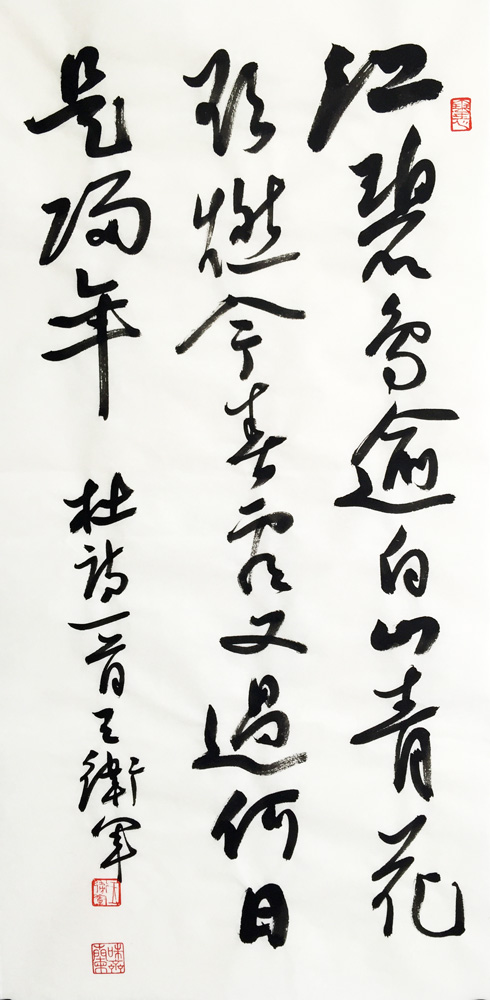 江碧鳥逾白山青花
欲燃今春看又過何日
是歸年
杜詩一首王衛軍